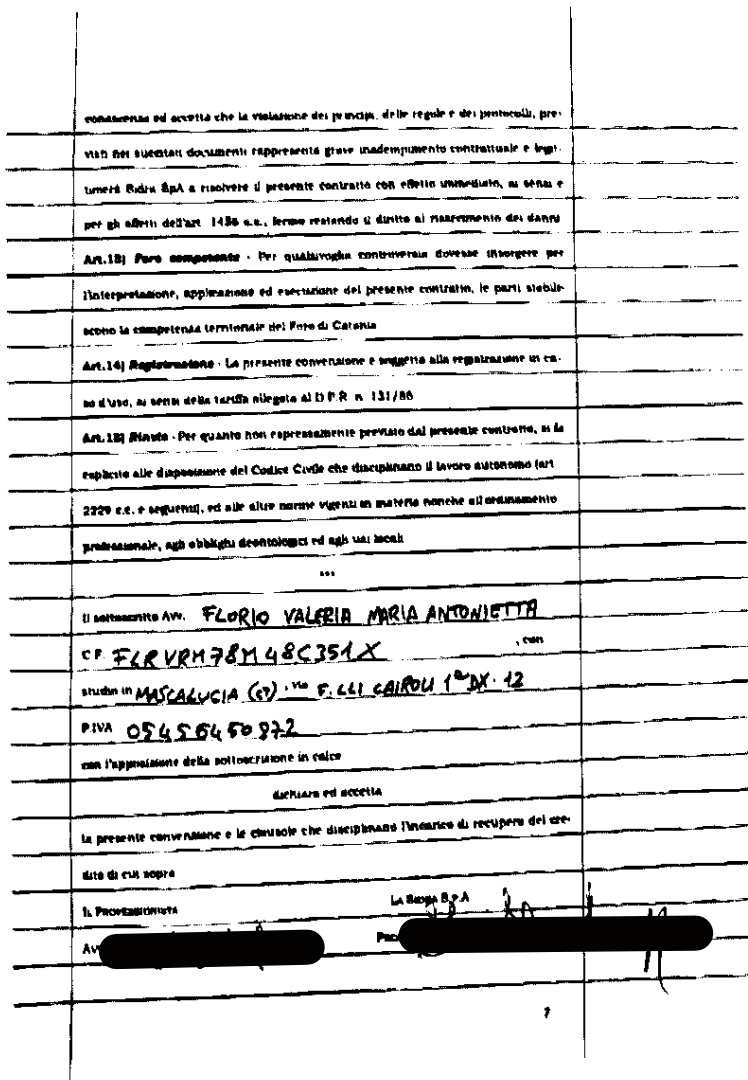 conoscenza ed accetta che la violazione dei principi, delle regole e dei protocolli, pre-
visti nei suddetti documenti rappresenta grave inadempimento contrattuale e legit-
timerà Sidra SpA a risolvere il presente contratto con effetto immediato, ai sensi e
per gli effetti dell'art. 1456 c.c., fermo restando il diritto al risarcimento dei danni
Art.13) Foro competente - Per qualsivoglia controversia dovesse insorgere per
l'interpretazione, applicazione ed esecuzione del presente contratto, le parti stabili-
scono la competenza territoriale del Foro di Catania
Art.14) Registrazione - La presente convenzione è soggetta alla registrazione in ca-
so d'uso, ai sensi della tariffa allegata al D P.R. n. 131/86
Rinvio - Per quanto non espressamente previsto dal presente contratto, si fa
esplicito alle disposizione del Codice Civile che disciplinano il lavoro autonomo (art
2229 c.c. e seguenti), ed alle altre norme vigenti in materia nonche all'ordinamento
professionale, agli obblighi deontologici ed agli usi locali
***
Il sottoscritto Avv. FLORIO VALERIA MARIA ANTONIETTA
C F. FLRVRM78M48C351X , con
studio in MASCALUCIA (CT) F.LLI CAIROLI 12
P.IVA 05456450872
con l'apposizione della sottoscrizione in calce
dichiara ed accetta
la presente convenzione e le clausole che disciplinano l'incarico di recupero del cre-
dito di cui sopra
IL PROFESSIONISTA
LA SIDRA S.P.A
7